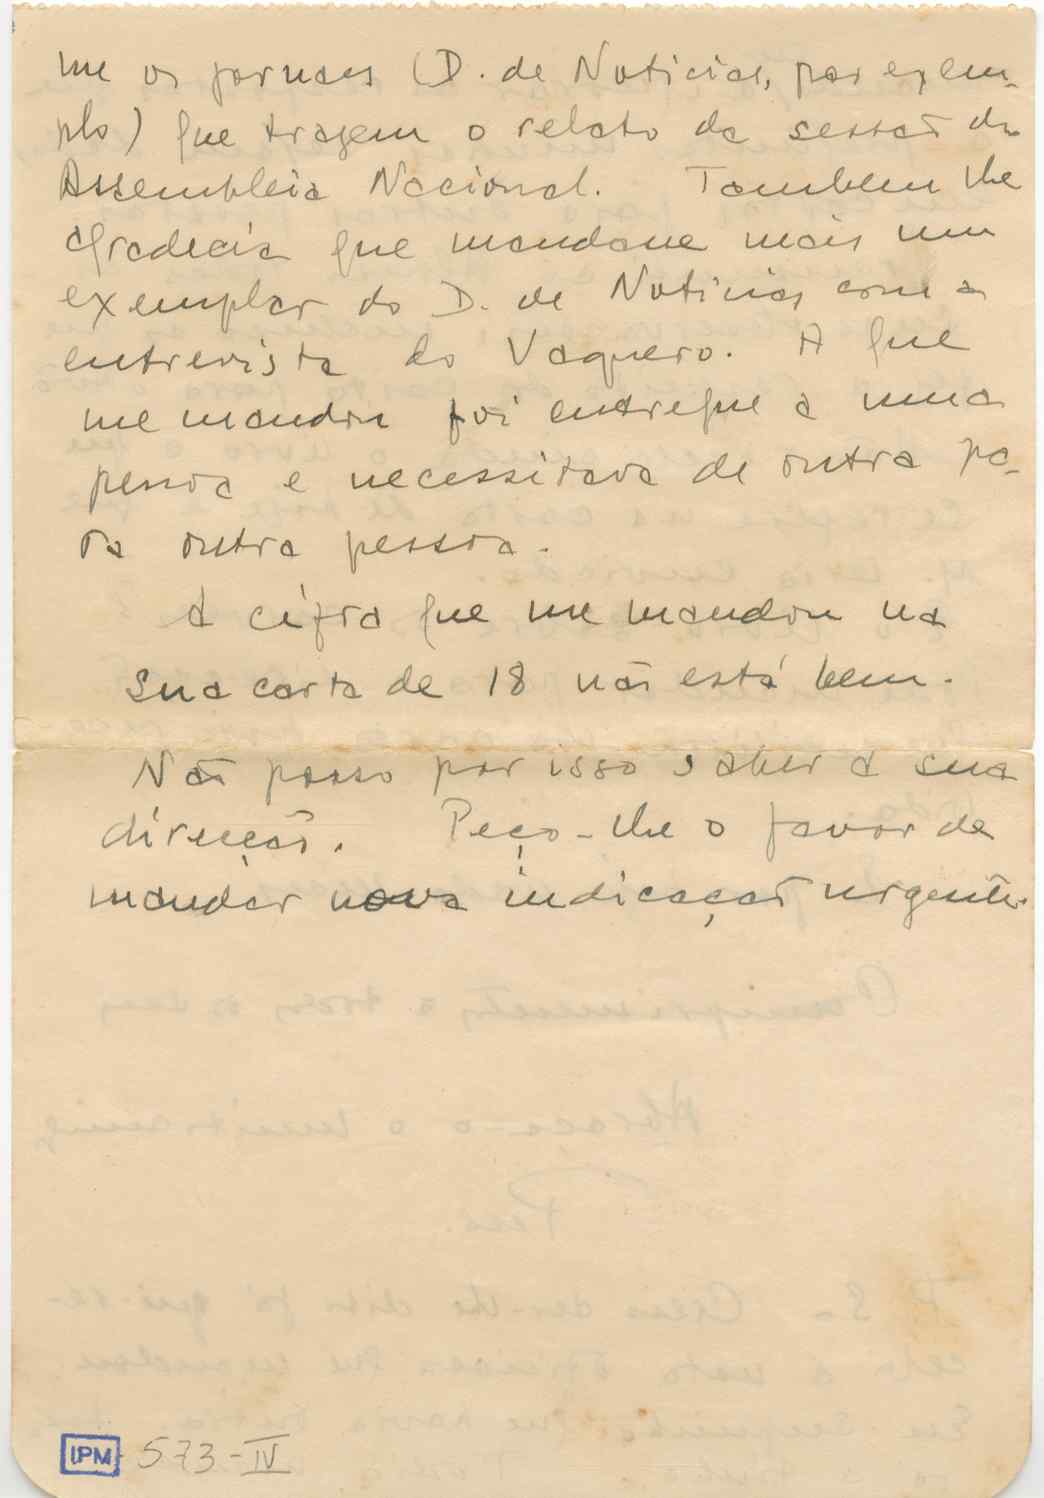 me os jornaes (D. de Noticias, por exem-
plo) que tragem o relato da sessão da
Assembleia Nacional. Tambem lhe
agradecia que mandasse mais um
exemplar do D. de Noticias com a
entrevista do Vaquero. A que
me mandou foi entregue a uma
pessoa e necessitava de outra pa-
ra outra pessoa.
A cifra que me mandou na
sua carta de 18 não está bem.
Não posso por isso saber a sua
direcção. Peço-lhe o favor de
mandar nova indicação urgente.
IPM 573-IV